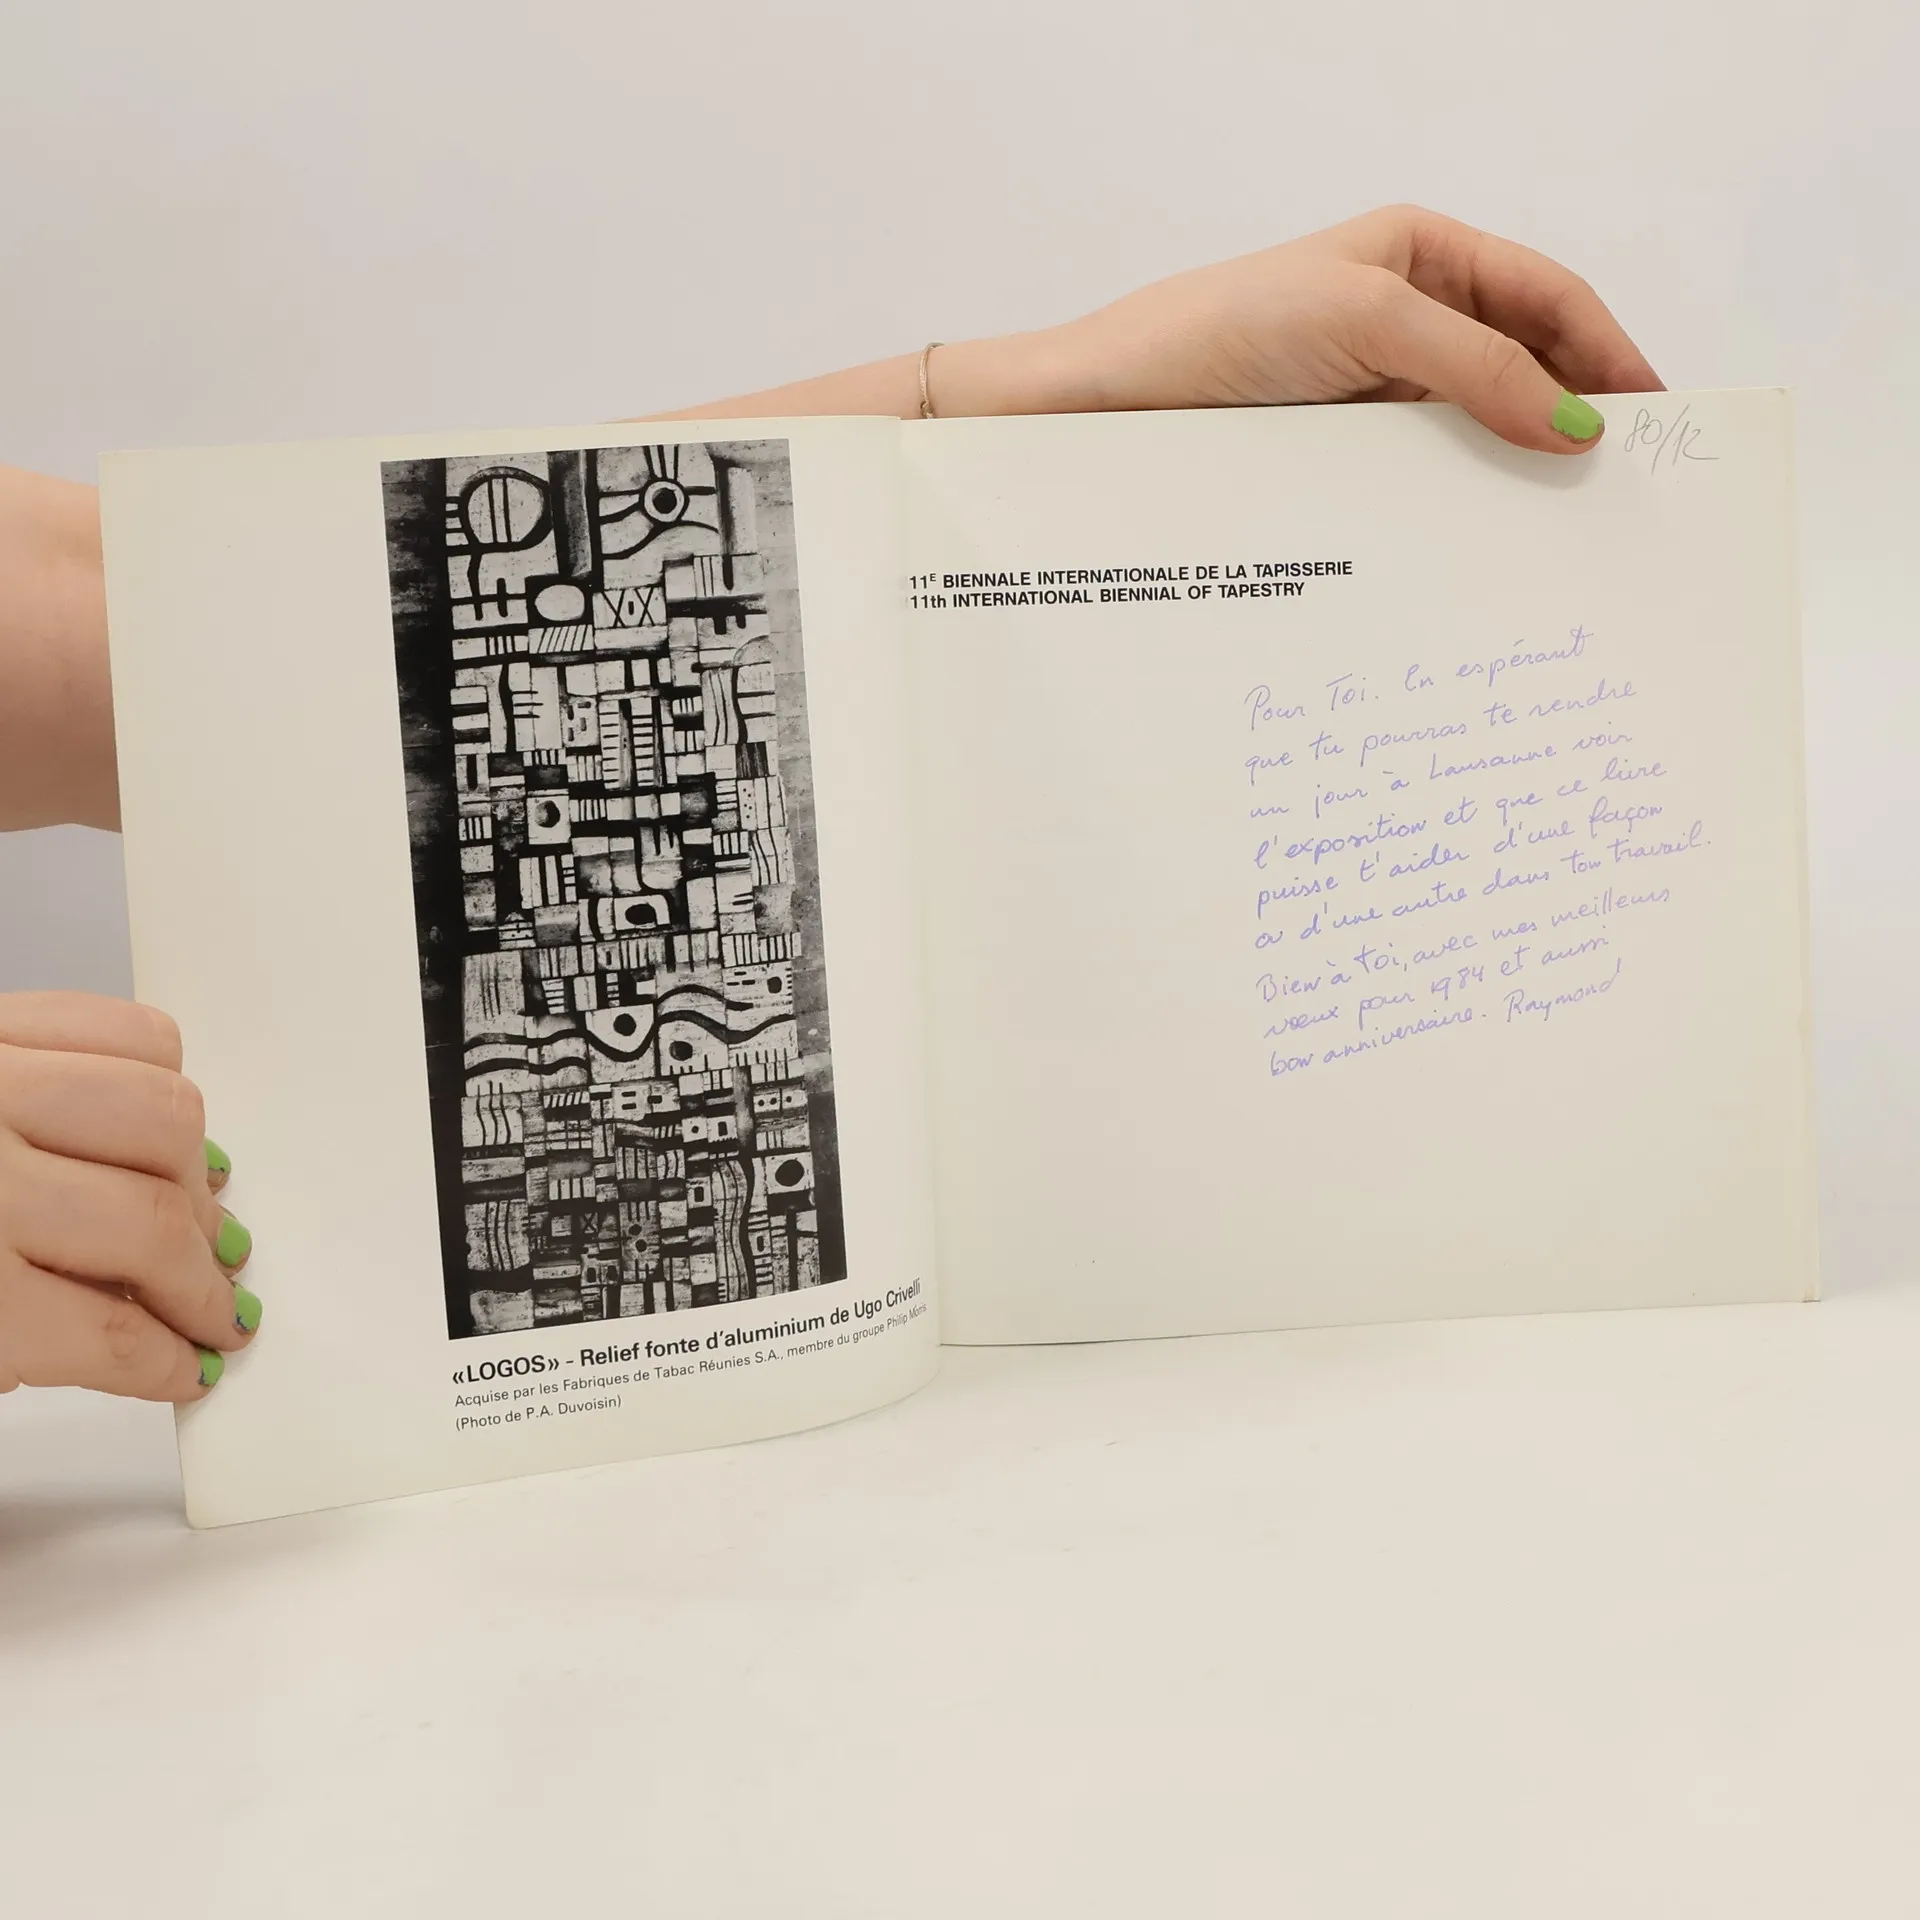 «LOGOS» - Relief fonte d'aluminium de Ugo Crivelli
Acquise par les Fabriques de Tabac Réunies S.A., membre du groupe Philip Morris
(Photo de P.A. Duvoisin)
80/12
11E BIENNALE INTERNATIONALE DE LA TAPISSERIE
11th INTERNATIONAL BIENNIAL OF TAPESTRY
Pour Toi. En espérant
que tu pourras te rendre
un jour à Lausanne voir
l'exposition et que ce livre
puisse t'aider d'une façon
ou d'une autre dans ton travail.
Bien à toi, avec mes meilleurs
vœux pour 1984 et aussi
bon anniversaire. Raymond